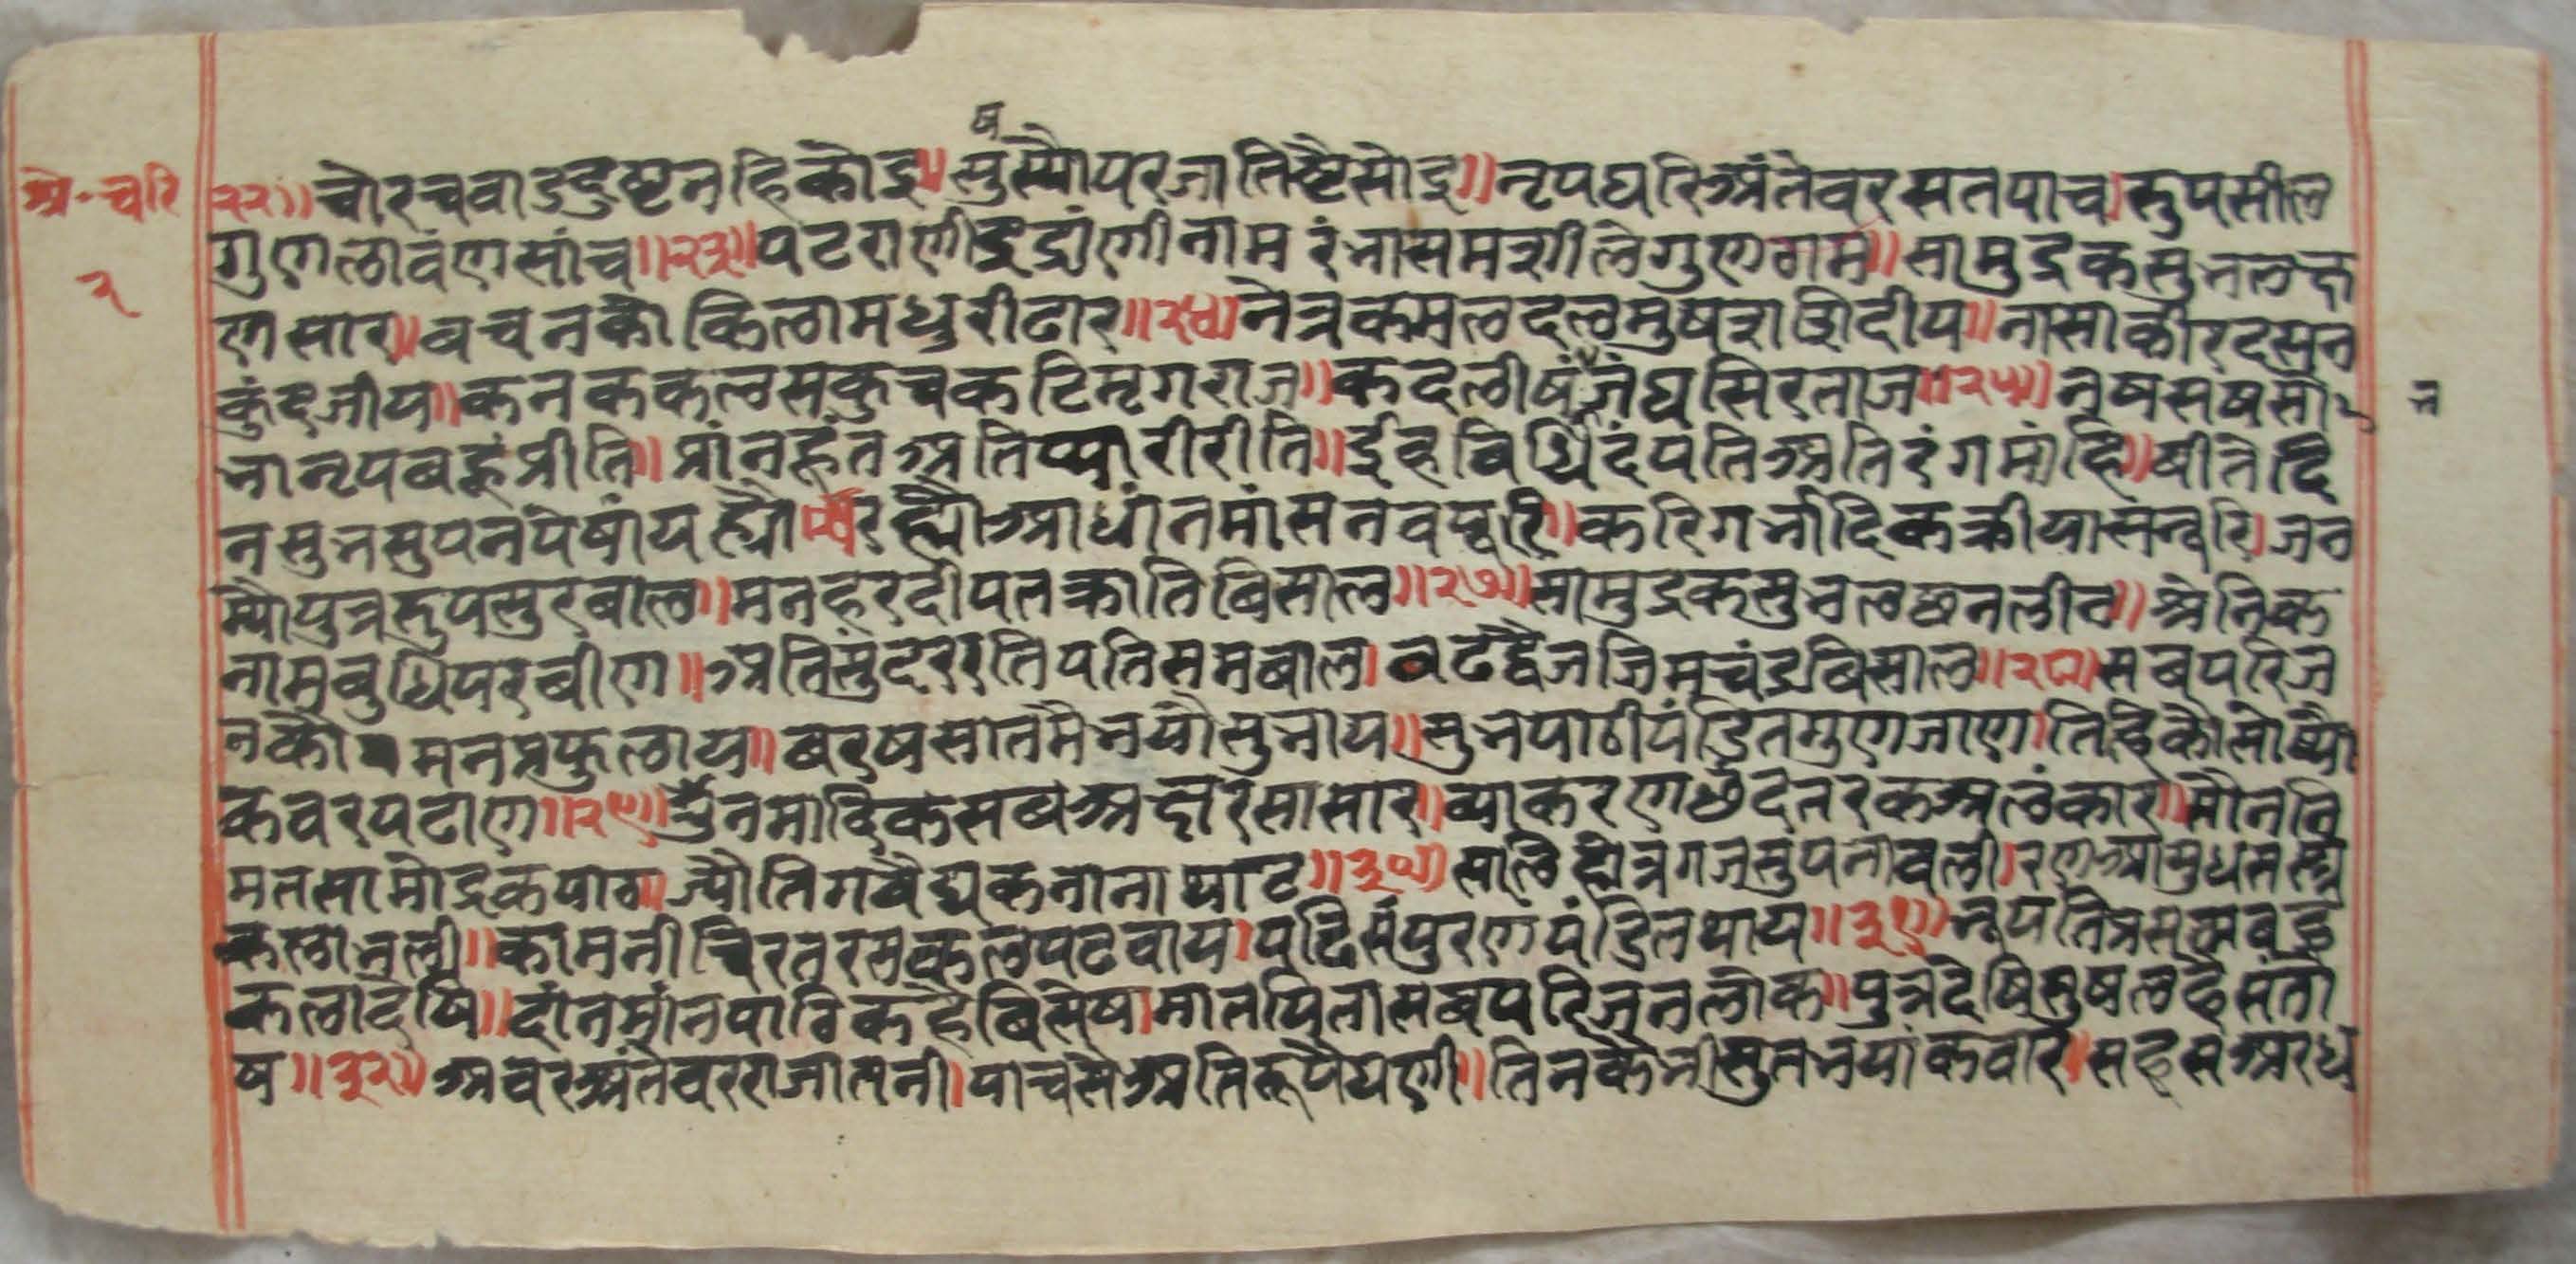 ष
श्रे॰चरि
२
२२॥चोरचवाडदुष्टनहिकोइ॥सुस्यौपरजातिष्टैसोइ॥नृपघरिअंतेवरसतपाच।रुपसील
गुणलावंणसांच॥२३॥पटराणीइद्रांणीनामरंभासमशीलेगुणठाम॥सामुद्रकसुभलक्ष
णसार॥वचनकोकिलामधुरीढार॥२४॥नेत्रकमलदलमुषशशिदीप॥नासाकीरदसन
कुंदजीप॥कनककलसकुचकटिमृगराज॥कदलीषंभजंघसिरताज॥२५॥नृषसषसौ
न
भानृपबहूप्रीति॥प्रांनहूंतअतिप्यारीरीति॥ईहविधिदंपतिअतिरंगमांहि॥बीतेदि
नसुभसुपनपेषांय रह्यौआधांनमांसनवपूरि॥करिगर्भादिकक्रीयासनूरि।जन
म्यौपुत्ररुपसुरबाल॥मनहरदीपतक्रातिबिसाल॥२७॥सामुद्रकसुभलछनलीन॥श्रेनिक
नामबुधिपरबीण॥अतिसुंदररतिपतिसमबाल।बढैद्वैजजिमचंद्रबिसाल॥२८॥सबपरिज
नकौमनप्रफुलाय॥बरषसातमैभयौसुभाय॥सुभपाठीपंडितगुणजाण।तिहिकौसोंप्यौ
कवरपढाण॥२९॥ॐनमादिकसबअक्षरसासार॥व्याकरणछंदतरकअलंकार॥मौनति
मतसामोद्रकपाठ॥ज्यौतिगवैद्यकनानाथाट॥३०॥सालिहोत्रगजसुपनावली।रणआमुधसस्त्र
कलाभली॥कामनीचिरतरसकलपढवाय।पढिसंपुरणपंडितथाय॥३१॥नृपतिप्रसनबहु
कलादेषि॥दांनमांनपाठिकहैबिसेष।मातपितासबपरिजनलोक॥पुत्रदेषिसुषलहैसंतो
ष॥३२॥अवरअंतेवरराजातनी।पाचसैअतिरूपैघणी॥तिनकैभीसुतभयांकवार॥सहसअरध